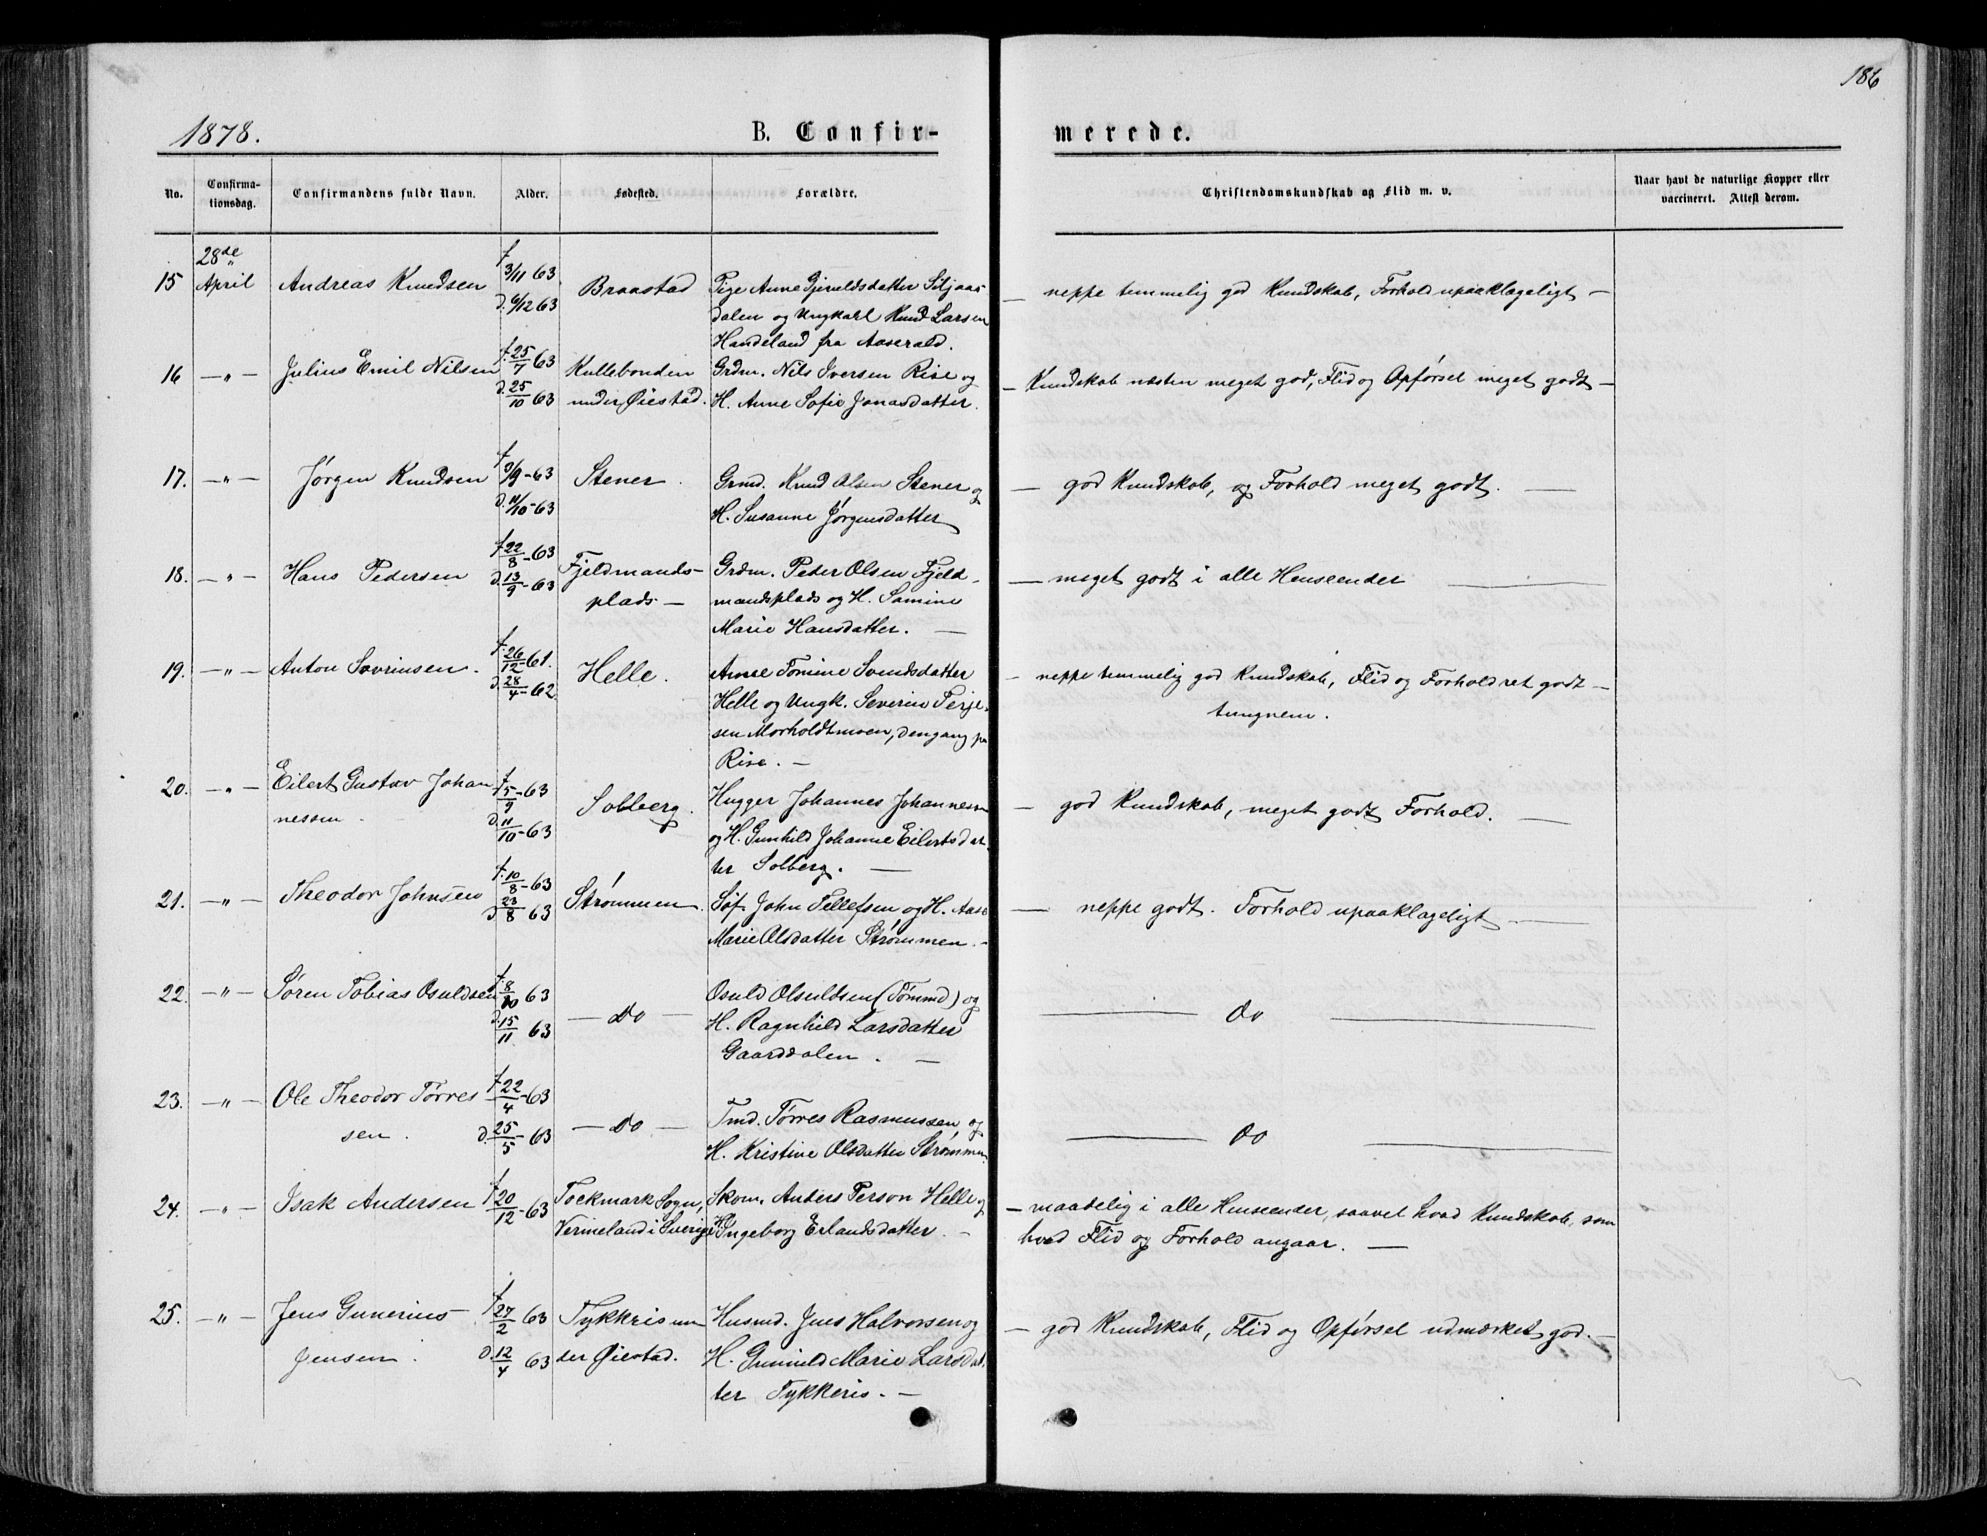 186
1878.
B. Confir-
merede.
No.
Confirma-
tionsdag.
Confirmandens fulde Navn.
Alder.
Fødested.
Forældre.
Christendomskundskab og Flid m. v.
Naar havt de naturlige Kopper eller
vaccineret. Attest derom.
28de
15 April Andreas Knudsen f 3/11 63 d. 6/12 63 Braastad
Pige Anne Gjeruldsdatter Siljaas-
dalen og Ungkarl Knud Larsen
Handeland fra Aaserald.
— neppe temmelig god Kundskab, Forhold upaaklageligt —
16 —"— Julius Emil Nilsen f. 25/7 63 d. 25/10 63
Kullebonden
under Øiestad.
Grdm. Nils Iversen Rise og
H. Anne Sofie Jonasdatter.
— Kundskab næsten meget god, Flid og Opførsel meget godt —
17. —"— Jørgen Knudsen f 3/9-63 d. 11/10-63 Stener.
Grmd. Knud Olsen Stener og
H. Susanne Jørgensdatter
— god Kundskab, og Forhold meget godt. —
18. —"— Hans Pedersen f 22/8-63 d. 13/9-63
Fjeldmands-
plads —
Grdm. Peder Olsen Fjeld-
mandsplads og H. Samine
Marie Hansdatter. —
— meget godt i alle Henseender —
19. —"— Anton Sevrinsen. f. 26/12-61. d. 28/4-62 Helle.
Anne Tomine Svendsdatter
Helle og Ungk. Severin Terje-
sen Morholdtmoen, dengang pa
Rise. —
— neppe temmelig god Kundskab, Flid og Forhold ret godt —
tungnem.
20. —"— Eilert Gustav Johan
nessen. f 5/9-63 d. 11/10-63 Solberg.
Hugger Johannes Johannesen
og H. Gunhild Johanne Eilertsdat-
ter Solberg. —
— god Kundskab, meget godt Forhold. —
21. —"— Theodor Johnsen f. 10/8-63 d 23/8 63 Strømmen.
Søf. John Tellefsen og H. Aase
Marie Olsdatter Strømmen. —
— neppe godt. Forhold upaaklageligt —
22. —"— Søren Tobias Osuldsen f 8/10 63 d. 15/11 63 — do —
Osuld Olsuldsen (Tømmd) og
H. Ragnhild Larsdatter
Gaarddalen. —
— do —
23. —"— Ole Theodor Tørres
sen. f 22/4-63 d. 25/5-63 — do —
Tmd. Tørres Rasmussen og
H. Kristine Olsdatter Strømmen
— do —
24. —"— Isak Andersen f 20/12-63
Tockmark Sogn,
Vermeland i Sverige
Skom. Anders Person Helle og
H. Ingeborg Erlandsdatter. —
— maadelig i alle Henseender, saavel hvad Kundskab, som
hvad Flid og Forhold angaar. —
25. —"— Jens Gunerius
Jensen. f 27/2 63 d. 12/4 63
Tykkris un
der Øiestad.
Husmd. Jens Halvorsen og
H. Gunuld Marie Larsdat-
ter Tykkeris. —
— god Kundskab, Flid og Opførsel udmærket god. —